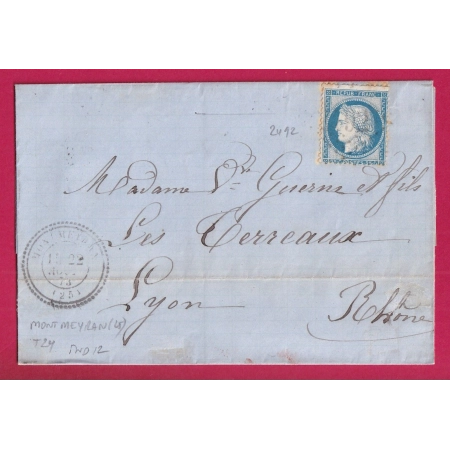 REPUB. FRANC.
2492
Madame Vve Guerin et fils
Les Terreaux
Lyon
Rhône
22
(25)
MONTMEYRAN (25)
T24 IND 12